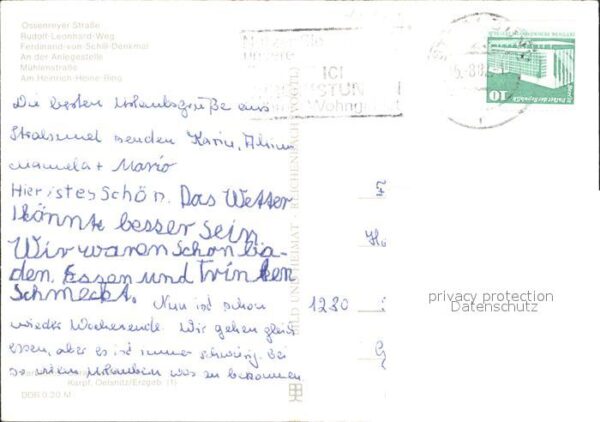 Ossenreyer Straße
Rudolf-Leonhard-Weg
Ferdinand-von Schill-Denkmal
An der Anlegestelle
Mühlenstraße
Am Heinrich-Heine-Ring
ICI
Wohngebiet
10
Die besten Urlaubsgrüße aus
Stralsund senden Karin,
Manuela + Mario
Hier ist es Schön. Das Wetter
könnte besser sein
Wir waren schon ba-
den. Essen und Trinken
Schmeckt.
Nun ist schon
wieder Wochenende. Wir gehen gleich
essen, aber es ist immer schwierig bei
so vielen Urlaubern was zu bekommen
1280
BILD UND HEIMAT REICHENBACH (VOGTL)
privacy protection
Datenschutz
Karpf, Oelsnitz/Erzgeb. (1)
DDR 0,20 M